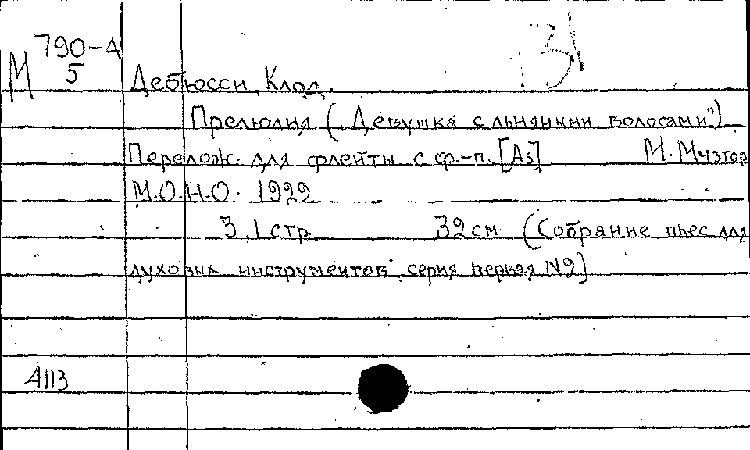 М 790-А
5
Дебюсси, Клод.
Прелюдия („Девушка с льняными волосами")
Перелож. для флейты с ф.-п. [Аз] М. Музтор
М.О.Н.О. 1929
3,1 стр 32 см (Собрание пьес для
духовых инструментов серия первая №9)
А113